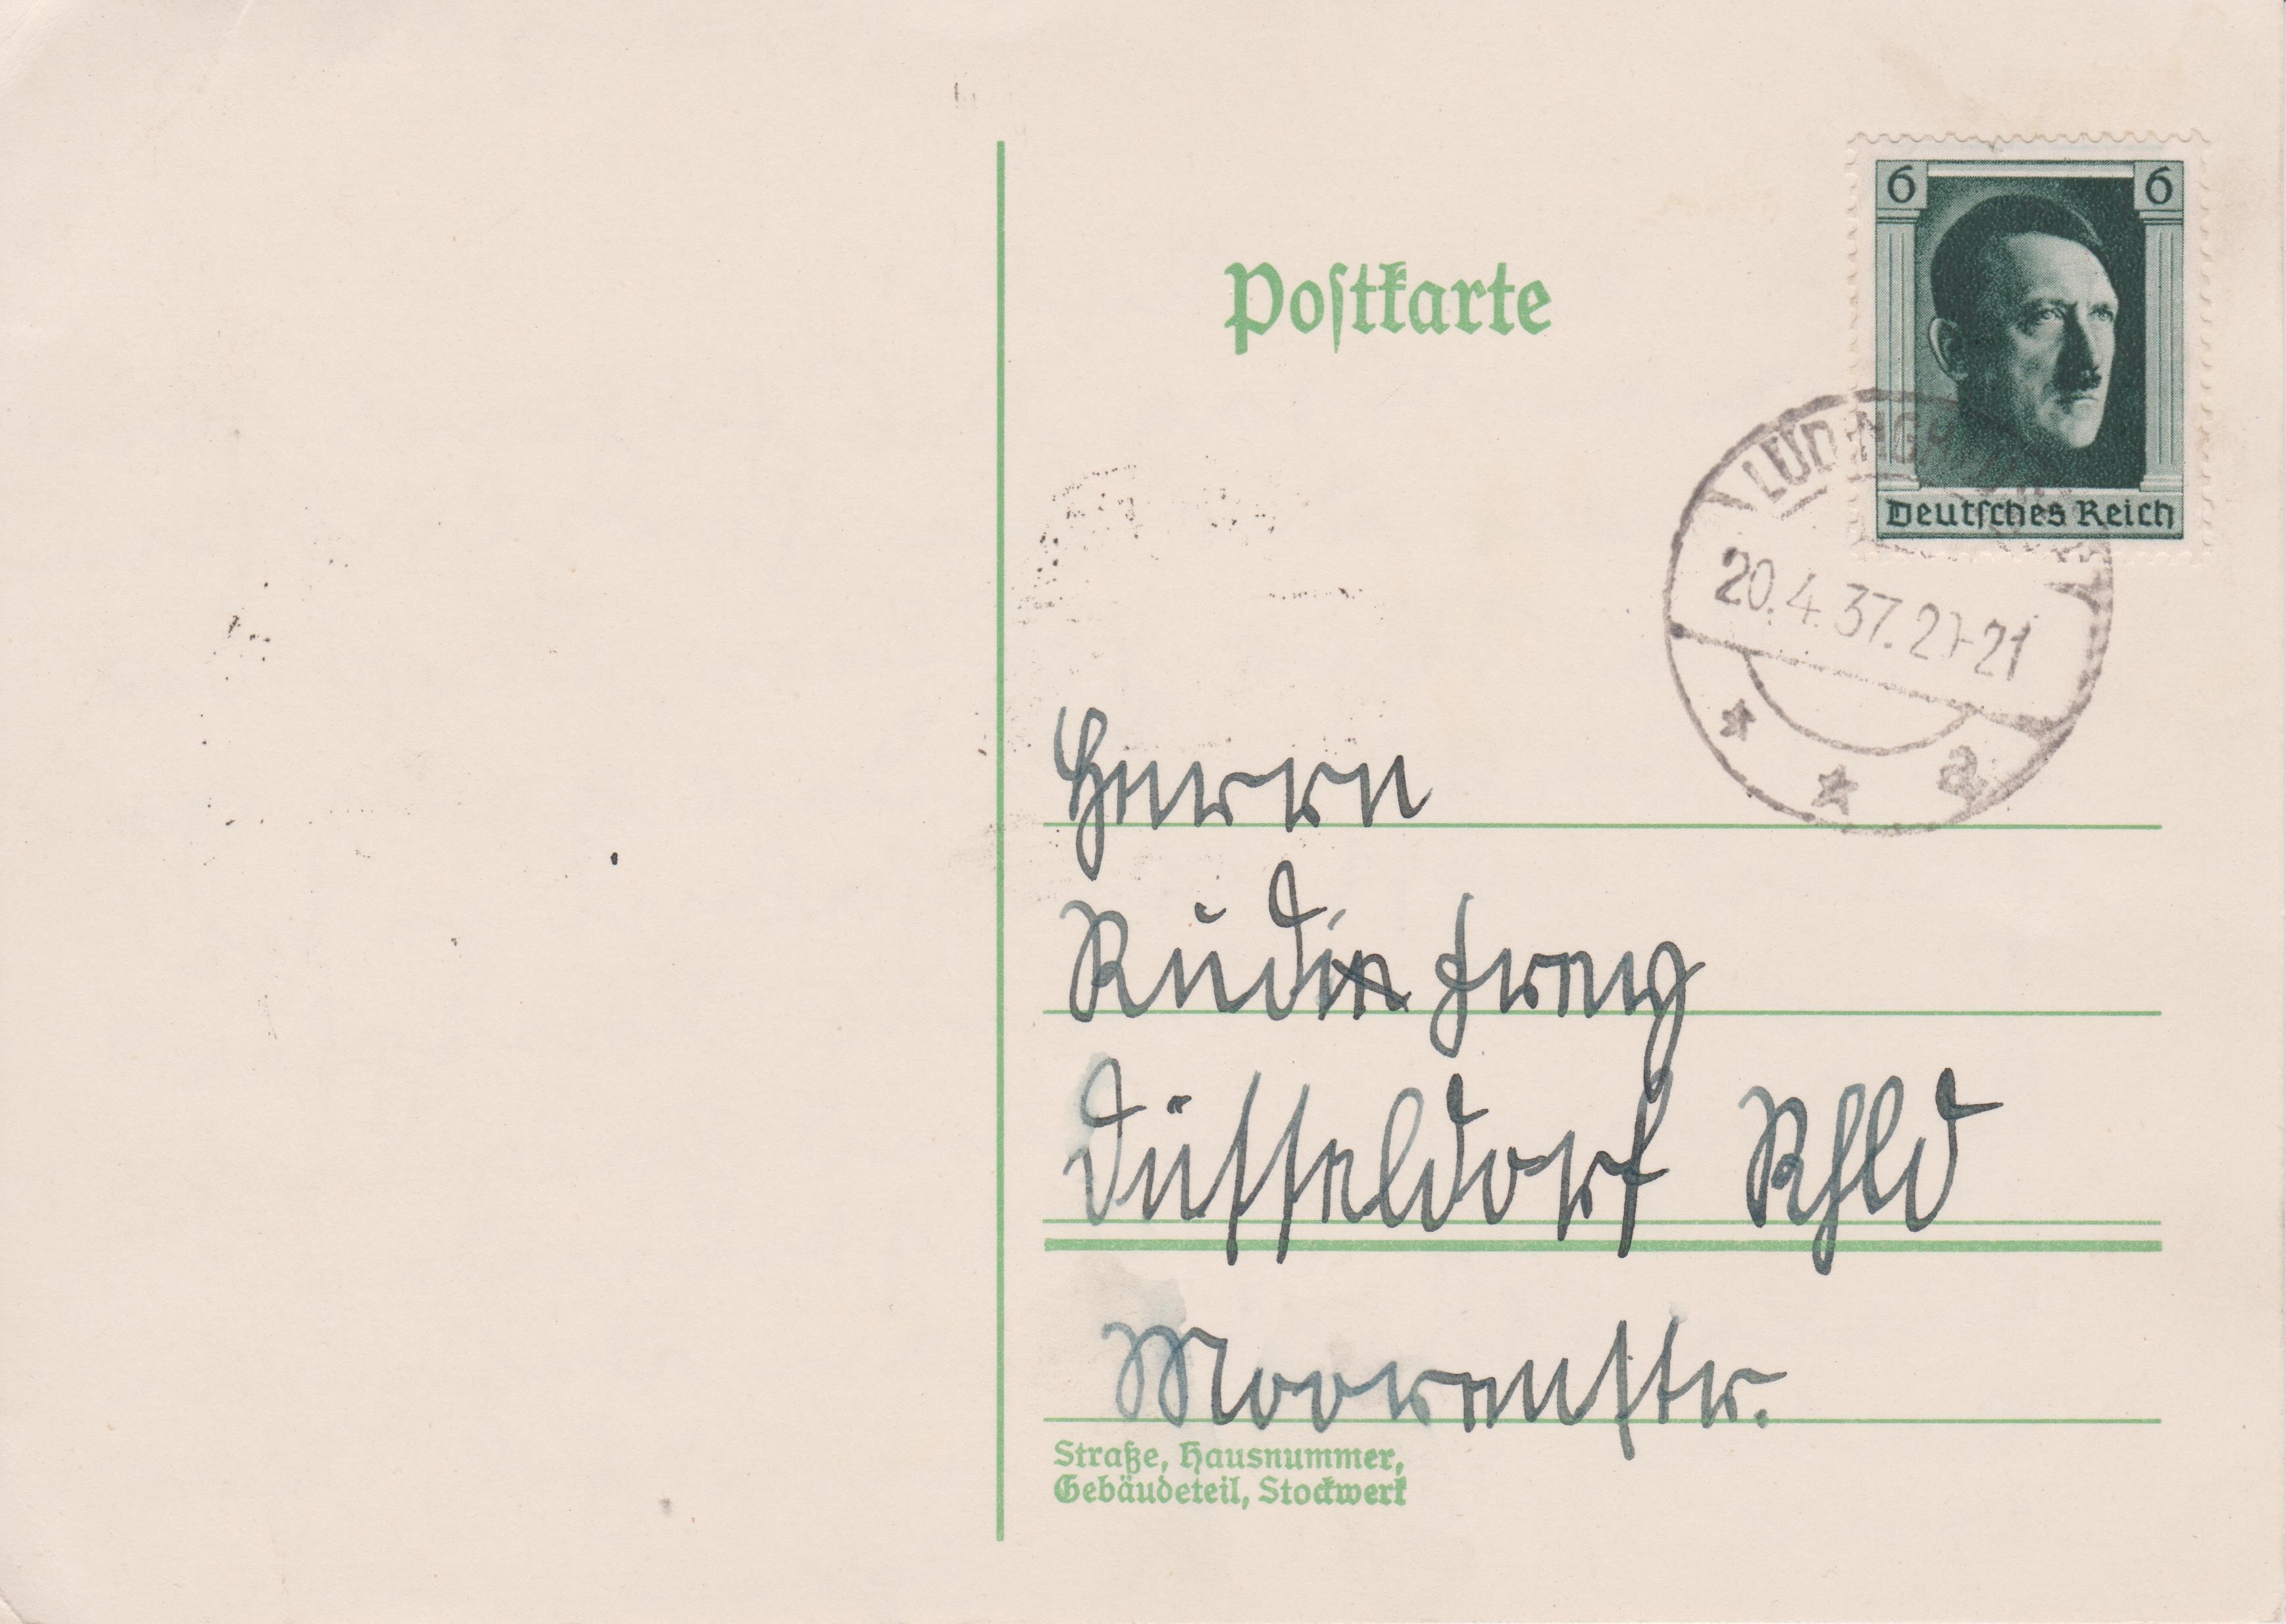 Postkarte
6 6
Deutsches Reich
20.4.37.
21
* * a
Herrn
Rudi Frey
Düsseldorf Rhld
Moorenstr.
Straße, Hausnummer,
Gebäudeteil, Stockwerk